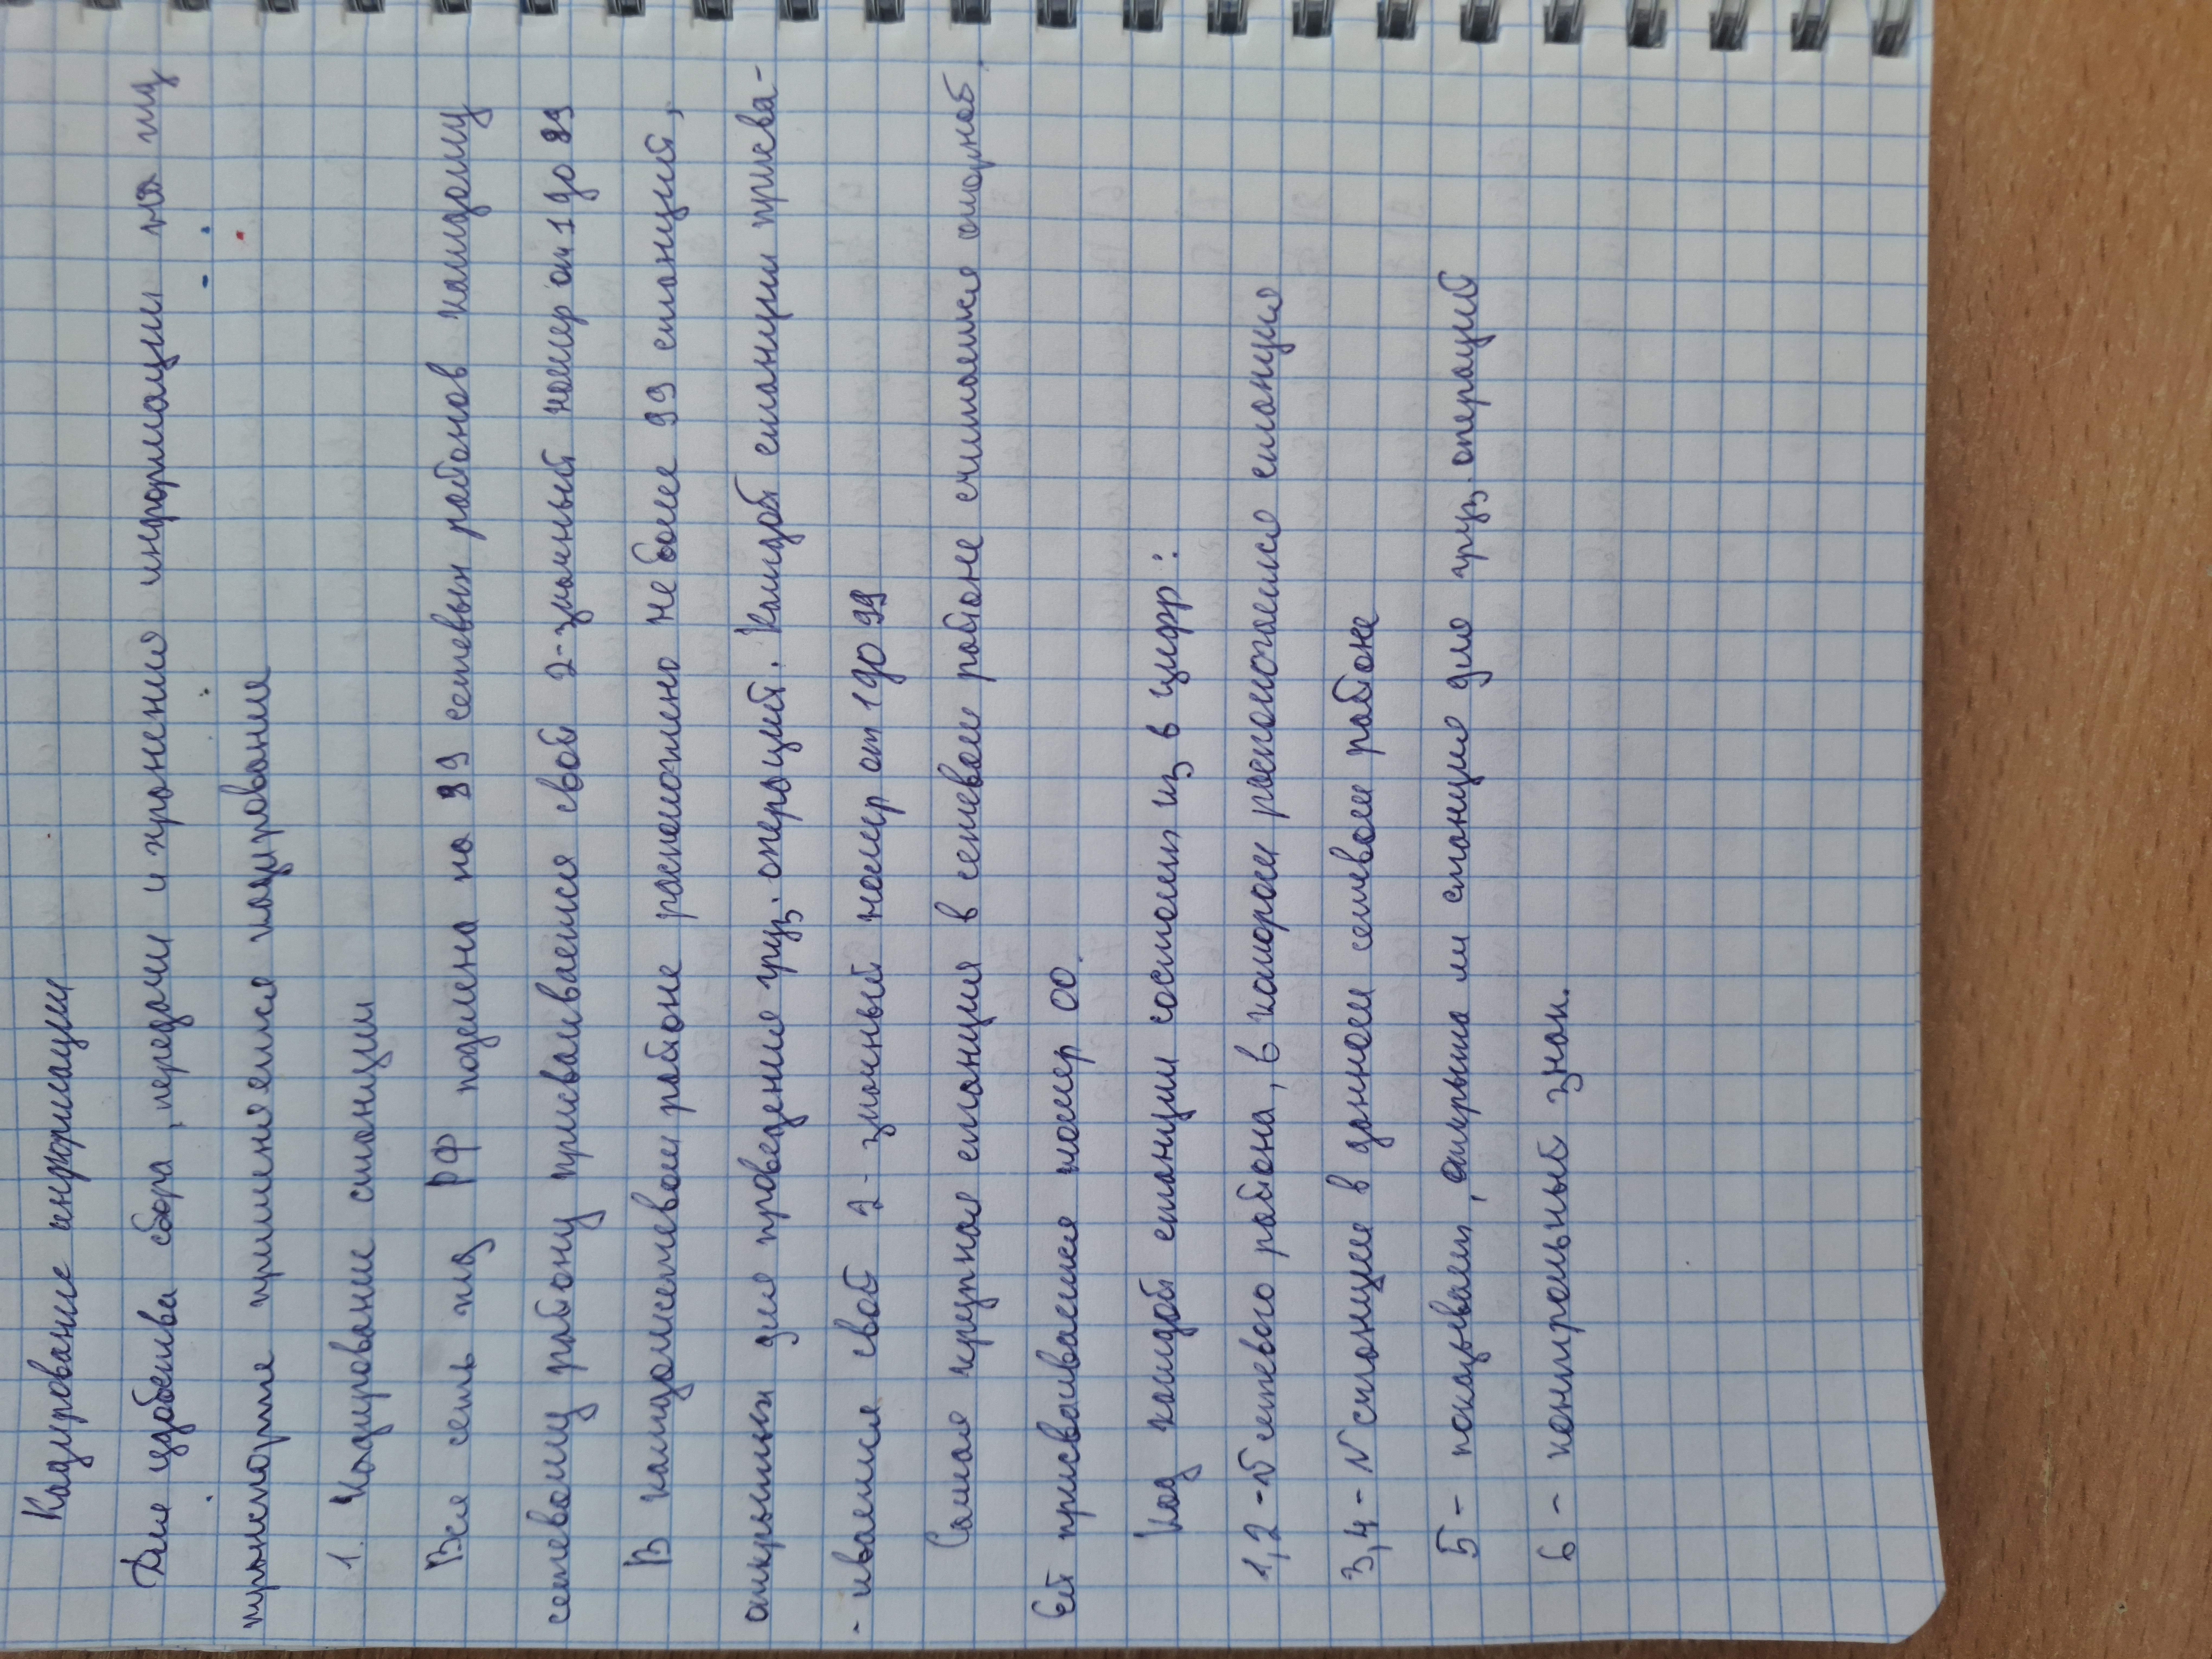 Кодирование информации
Для удобства сбора, передачи и хранения информации на жд
транспорте применяется кодирование
1. Кодирование станции
Вся сеть жд РФ поделена на 99 сетевых районов каждому
сетевому району присваивается свой 2-значный номер от 1 до 99
В каждом сетевом районе расположено не более 99 станций,
открытых для проведения груз. операций. Каждой станции присва-
- ивается свой 2-значный номер от 1 до 99
Самая крупная станция в сетевом районе считается опорной.
Ей присваивается номер 00.
Код каждой станции состоит из 6 цифр:
1,2 - № сетевого района, в котором расположена станция
3,4 - № станции в данном сетевом районе
5 - показывает, открыта ли станция для груз. операций
6 - контрольный знак.